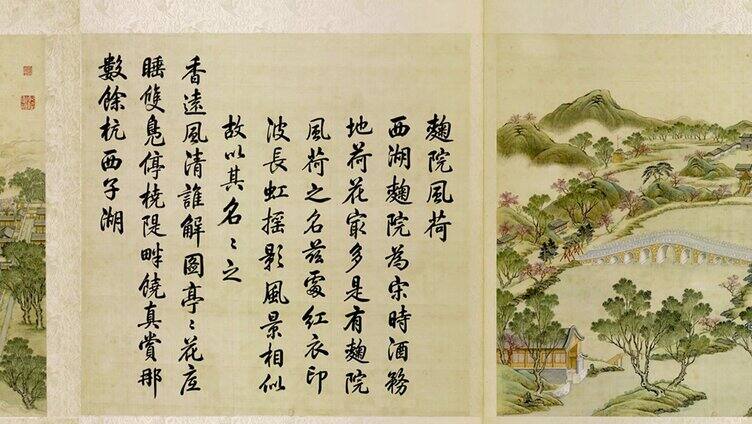 麹院風荷
西湖麹院為宋時酒務
地荷花冣多是有麹院
風荷之名茲處紅衣印
波長虹摇影風景相似
故以其名〻之
香遠風清誰解圖亭〻花底
睡雙鳧停橈隄畔饒真賞那
數餘杭西子湖